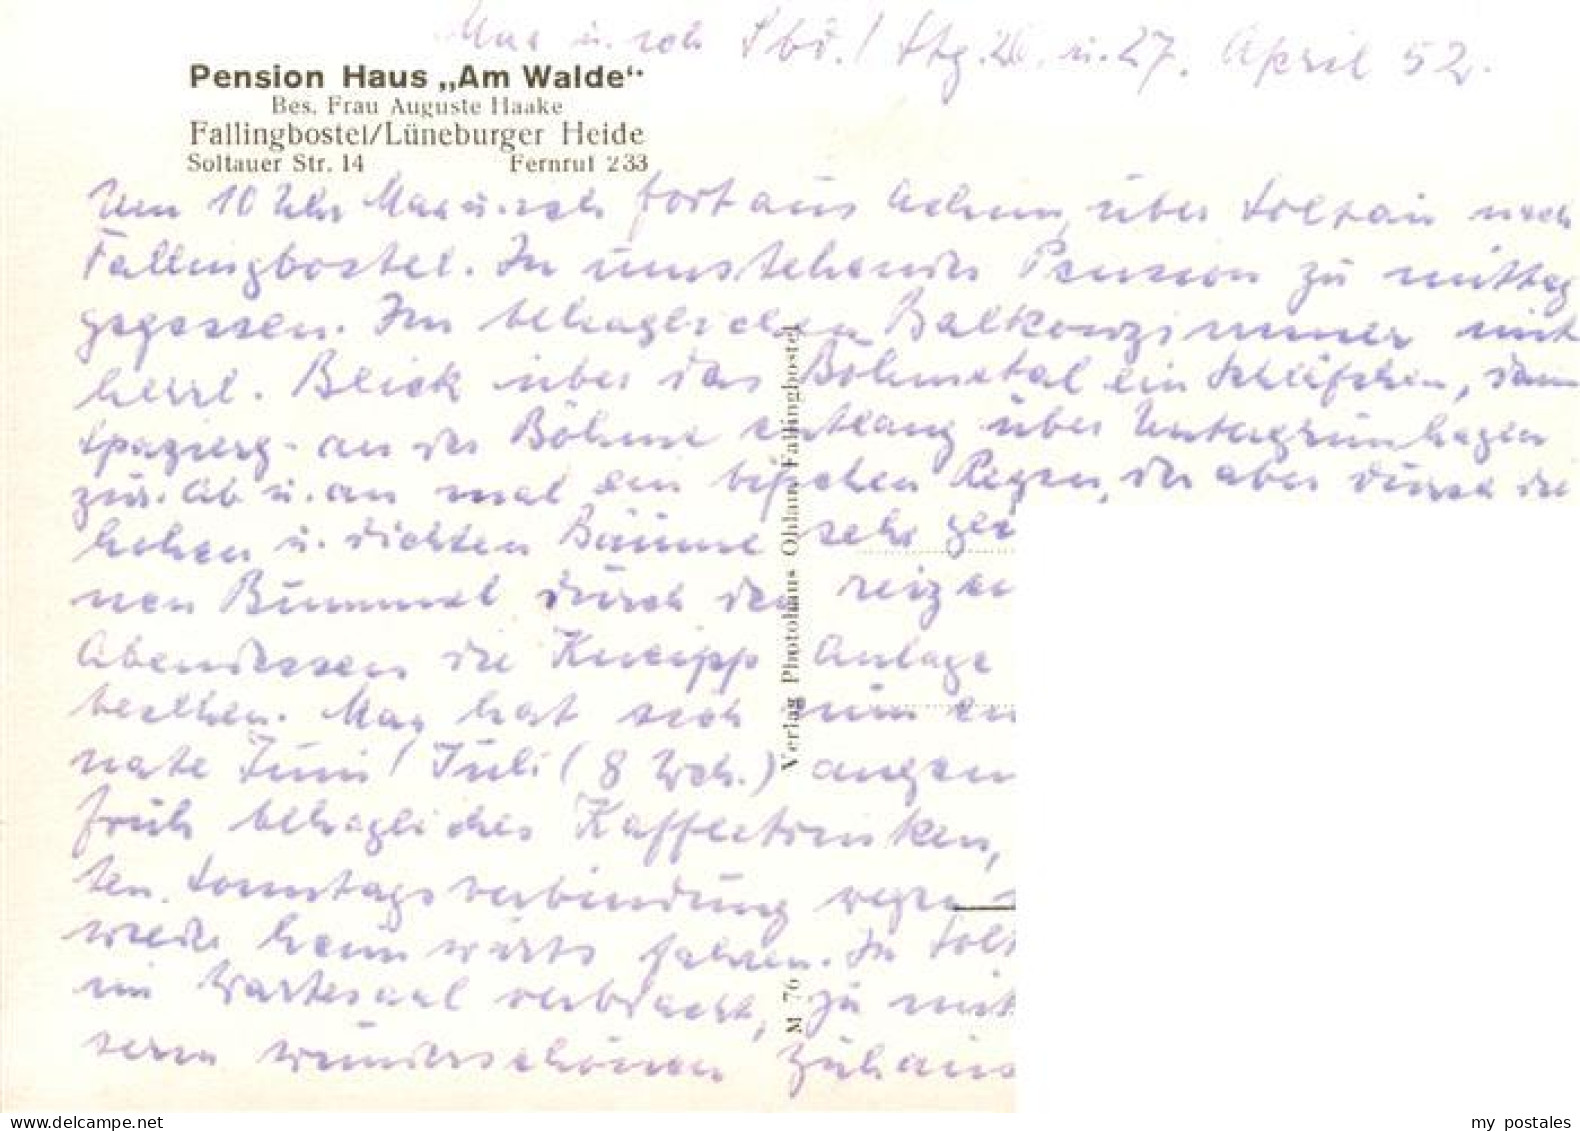 Max u. ich Sbd./Stg. 26. u. 27. April 52.
Pension Haus „Am Walde“
Bes. Frau Auguste Haake
Fallingbostel/Lüneburger Heide
Soltauer Str. 14 Fernruf 233
Um 10 Uhr Max u. ich fort aus Achim, über Soltau nach
Fallingbostel. In umstehender Pension zu mittag
gegessen. Im behaglichen Balkonzimmer mit
herrl. Blick über das Böhmetal ein Schläfchen, dann
Spazierg. an der Böhme entlang über Untergrünhagen
zur. Ab u. an mal ein bißchen Regen, der aber durch die
hohen u. dichten Bäume sehr
nen Bummel durch den
Abendessen die Kneipp Anlage
besehen. Max hat sich
nate Juni/Juli (8 Wch.)
früh behagliches Kaffeetrinken,
ten Sonntagsverbindung
wieder heimwärts fahren. In
im Wartesaal verbracht, zu
serm wunderschönen
Verlag Photohaus Ohlau, Fallingbostel
M 76
my postales
delcampe.net